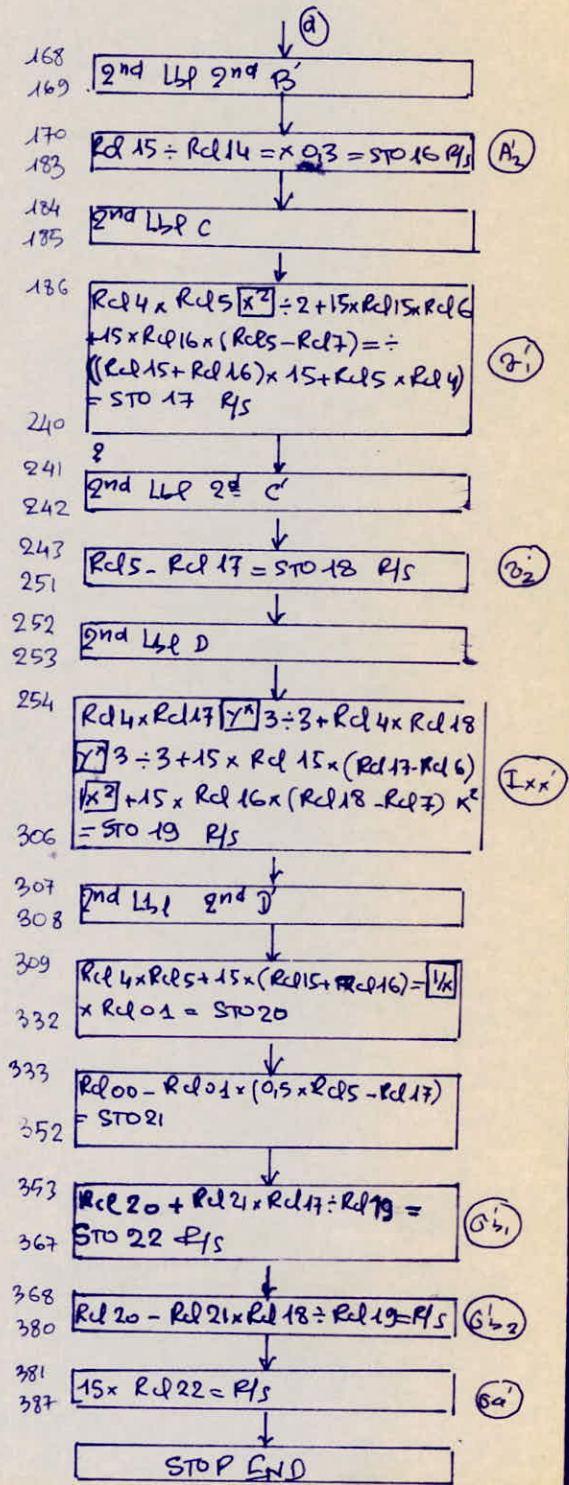 a
168
169
2nd Lbl 2nd B'
170
183
Rcl 15 ÷ Rcl 14 = × 0,3 = STO 16 R/S
A'2
184
185
2nd Lbl C
186
240
Rcl 4 × Rcl 5 x² ÷ 2 + 15 × Rcl 15 × Rcl 6
+ 15 × Rcl 16 × (Rcl 5 - Rcl 7) = ÷
((Rcl 15 + Rcl 16) × 15 + Rcl 5 × Rcl 4)
= STO 17 R/S
241
242
2nd Lbl 2d C'
243
251
Rcl 5 - Rcl 17 = STO 18 R/S
252
253
2nd Lbl D
254
306
Rcl 4 × Rcl 17 Yˣ 3 ÷ 3 + Rcl 4 × Rcl 18
Yˣ 3 ÷ 3 + 15 × Rcl 15 × (Rcl 17 - Rcl 6)
x² + 15 × Rcl 16 × (Rcl 18 - Rcl 7) x²
= STO 19 R/S
Ixx'
307
308
2nd Lbl 2nd D'
309
332
Rcl 4 × Rcl 5 + 15 × (Rcl 15 + Rcl 16) = 1/x
× Rcl 01 = STO 20
333
352
Rcl 00 - Rcl 01 × (0,5 × Rcl 5 - Rcl 17)
= STO 21
353
367
Rcl 20 + Rcl 21 × Rcl 17 ÷ Rcl 19 =
STO 22 R/S
σ'b1
368
380
Rcl 20 - Rcl 21 × Rcl 18 ÷ Rcl 19 = R/S
σ'b2
381
387
15 × Rcl 22 = R/S
σa'
STOP END